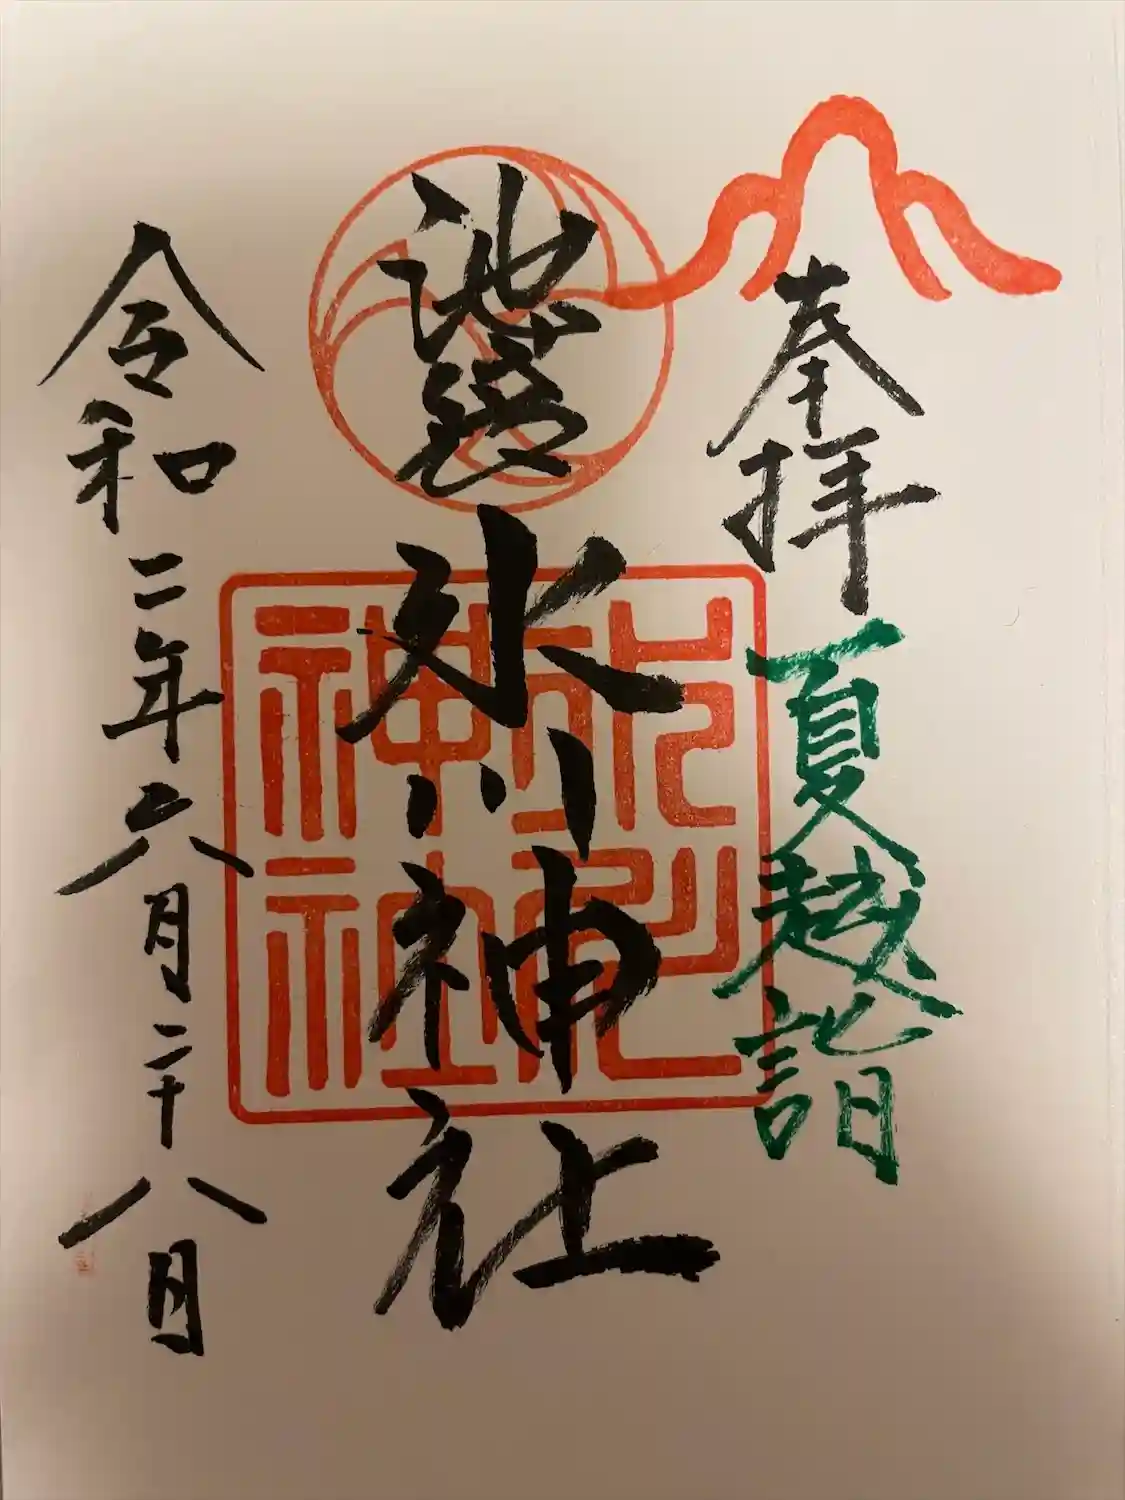 奉拝 夏越詣
池袋氷川神社
氷川神社
令和二年六月二十八日